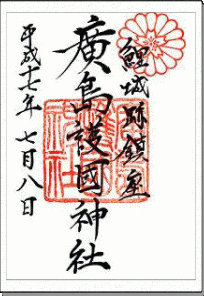 鯉城跡鎮座
廣島護國神社
平成十七年 七月八日